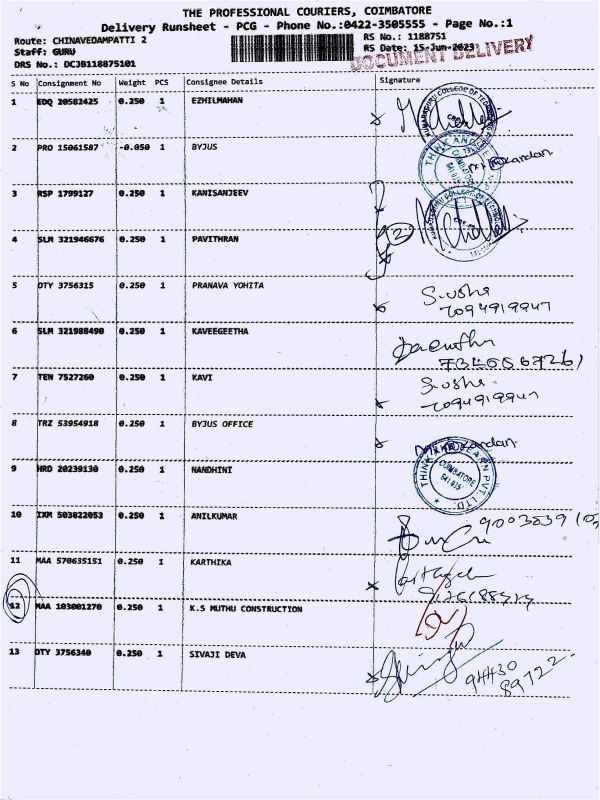 THE PROFESSIONAL COURIERS, COIMBATORE
Delivery Runsheet - PCG - Phone No.:0422-3505555 - Page No.:1
Route: CHINAVEDAMPATTI 2 RS No.: 1188751
Staff: GURU RS Date: 15-Jun-2023
DRS No.: DCJB118875101 DOCUMENT DELIVERY
S No Consignment No Weight PCS Consignee Details Signature
1 EDQ 20582425 0.250 1 EZHILMAHAN
2 PRO 15061587 -0.050 1 BYJUS
3 RSP 1799127 0.250 1 KANISANJEEV
4 SLM 321946676 0.250 1 PAVITHRAN
5 OTY 3756315 0.250 1 PRANAVA YOHITA
7094919947
6 SLM 321988490 0.250 1 KAVEEGEETHA
7 TEN 7527260 0.250 1 KAVI
7094919947
8 TRZ 53954918 0.250 1 BYJUS OFFICE
9 HRD 20239130 0.250 1 NANDHINI
THINK AND LEARN PVT. LTD
COIMBATORE
641 035
10 IXM 503822053 0.250 1 ANILKUMAR
11 MAA 570635151 0.250 1 KARTHIKA
12 MAA 103001270 0.250 1 K.S MUTHU CONSTRUCTION
13 OTY 3756340 0.250 1 SIVAJI DEVA
94430
89722